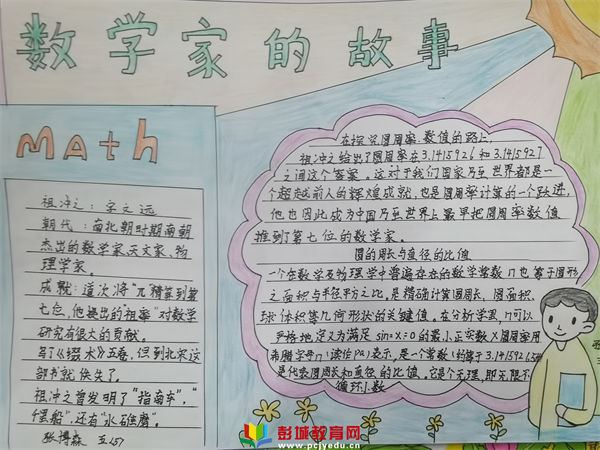 数学家的故事
MAth
祖冲之：字文远
朝代：南北朝时期南朝
杰出的数学家、天文家、物
理学家。
成就：首次将“π精算到第
七位，他提出的祖率”对数学
研究有很大的贡献。
写了《缀术》五卷，但到北宋这
部书就佚失了。
祖冲之曾发明了“指南车”，“
千里船”，还有“水碓磨”。
张博森 五
在探究圆周率数值的路上，
祖冲之给出了圆周率在3.1415926和3.1415927
之间这个答案。这对于我们国家乃至世界都是一
个超越前人的辉煌成就，也是圆周率计算的一个跃进，
他也因此成为中国乃至世界上最早把圆周率数值
推到了第七位的数学家。
圆的周长与直径的比值
一个在数学及物理学中普遍存在的数学常数π也等于圆形
之面积与半径平方之比。是精确计算圆周长、圆面积、
球体积等几何形状的关键值。在分析学里，π可以
严格地定义为满足sinx=0的最小正实数X圆周率用
希腊字母π（读作pài）表示，是一个常数（约等于3.1415926
是代表圆周长和直径的比值。它是个无理，即无限不
循环小数
彭城教育网
www.pcjyedu.com